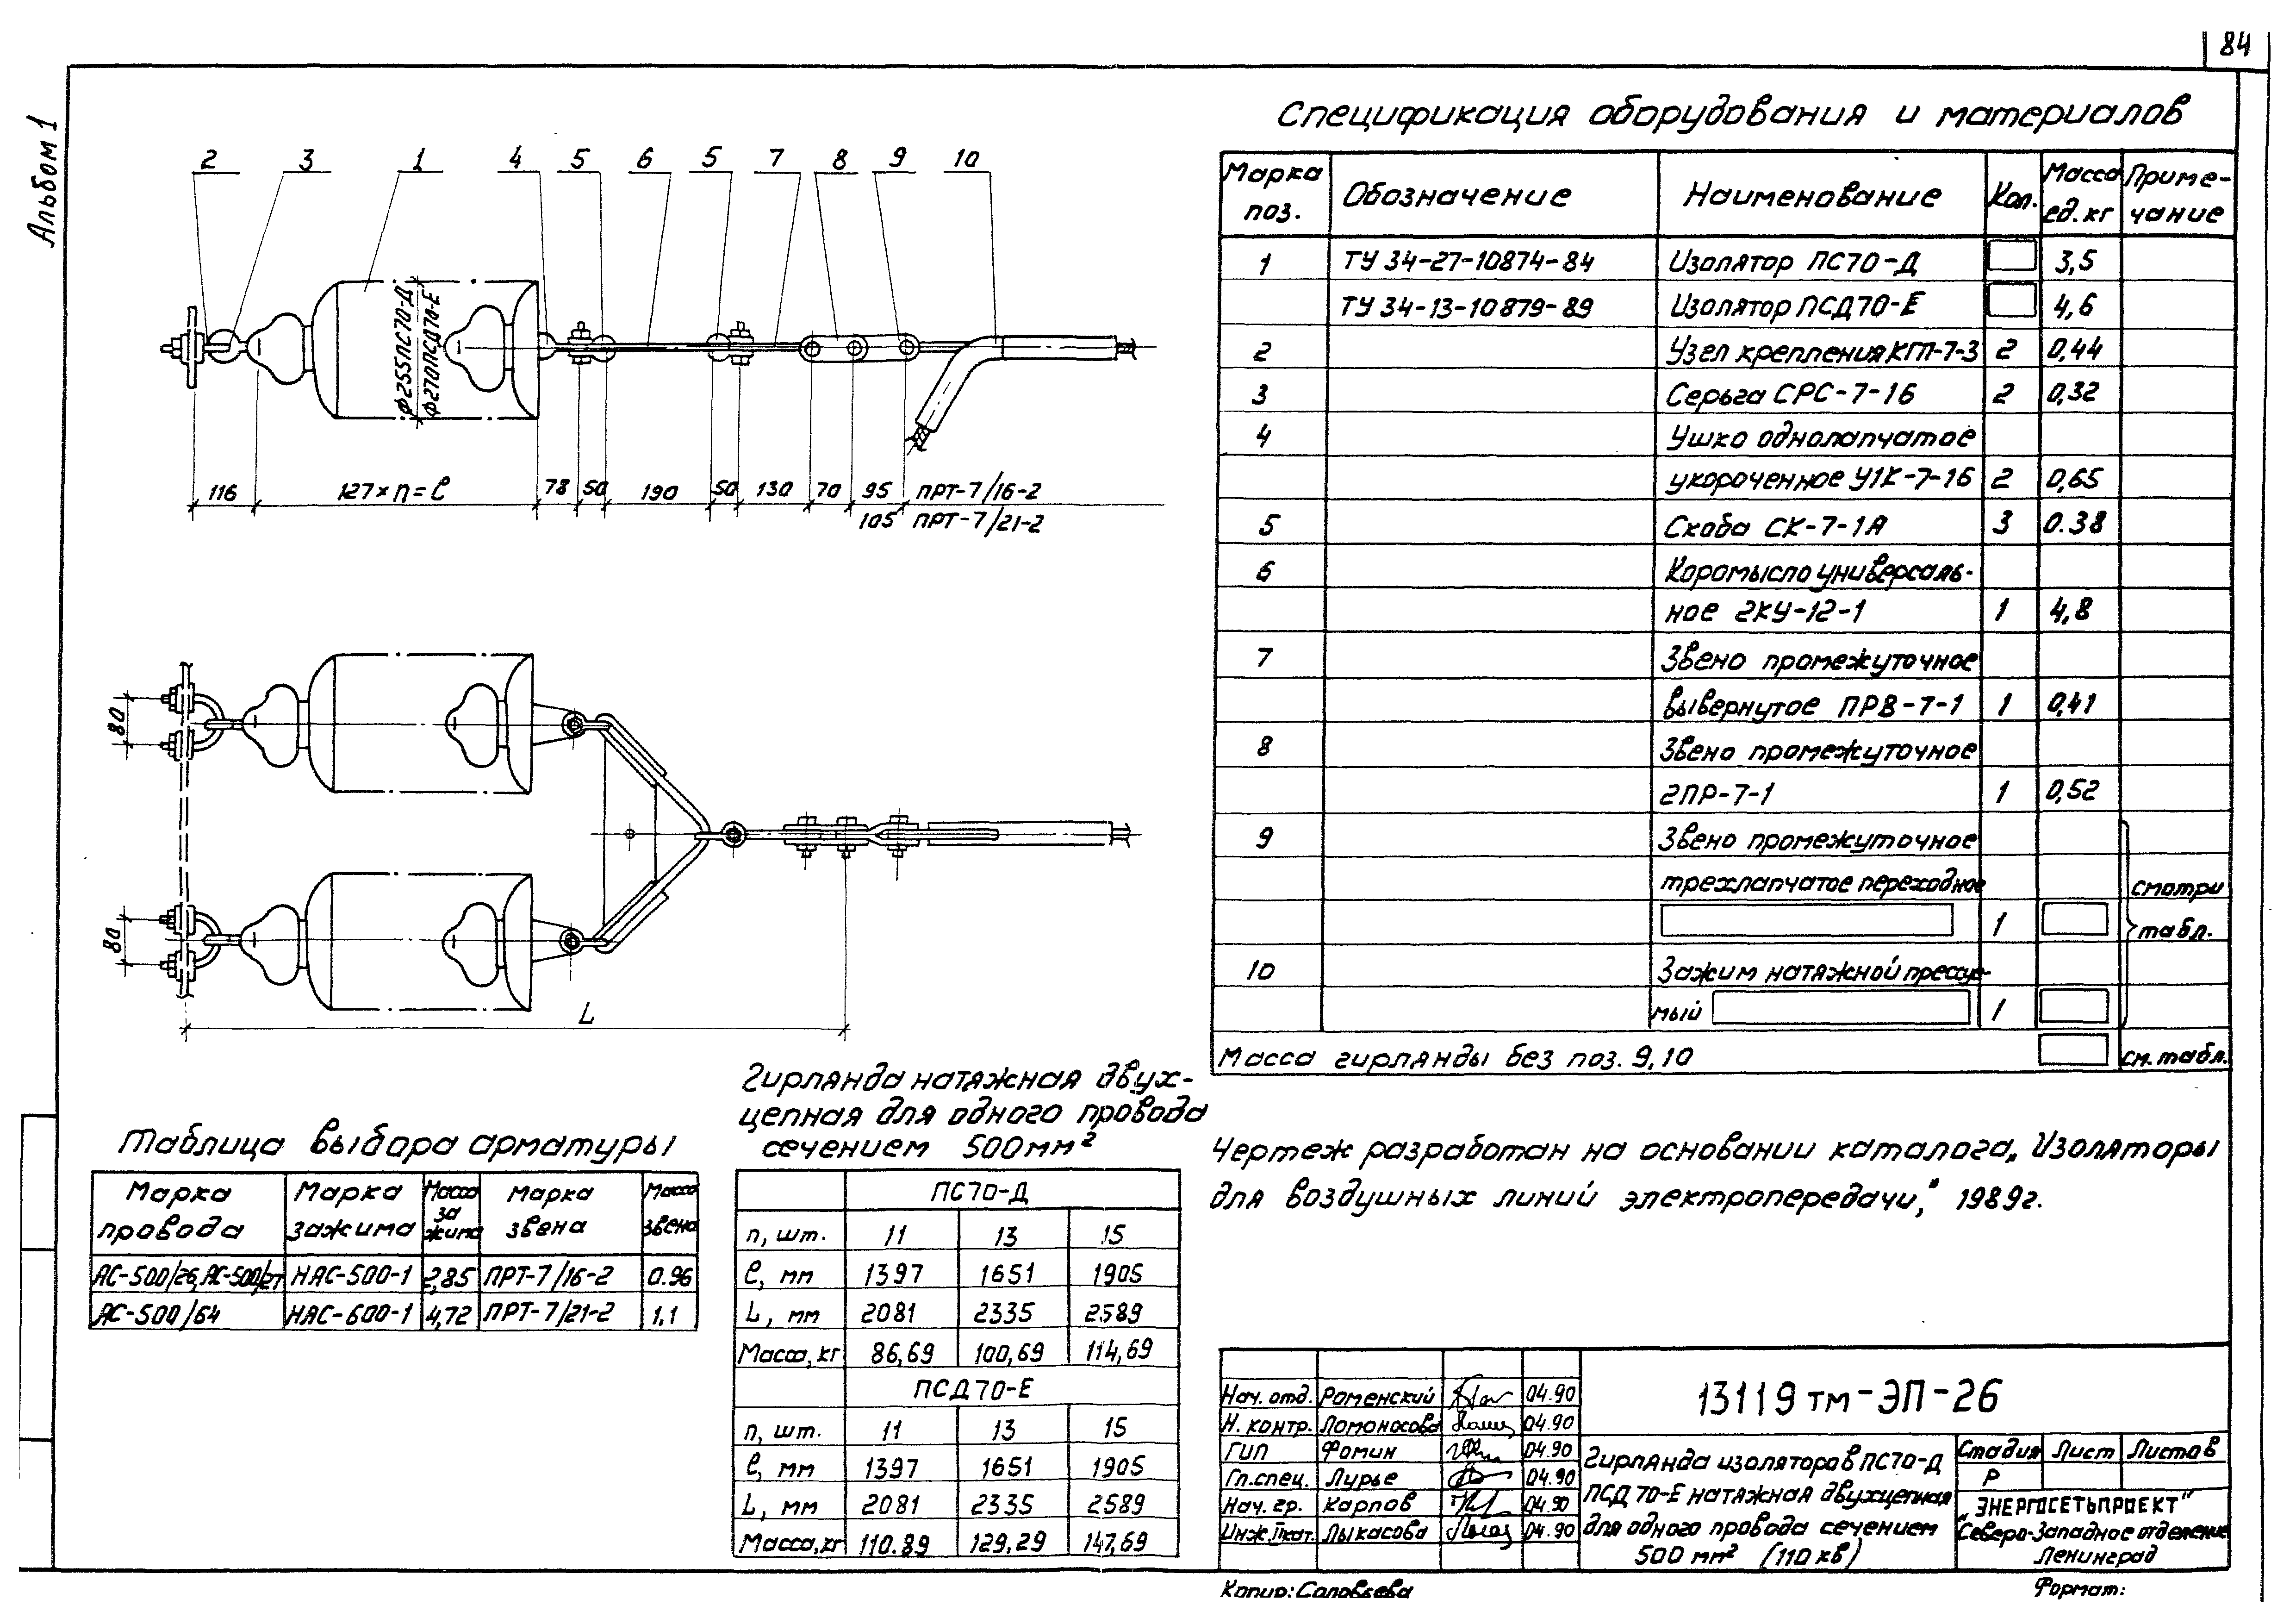 84
Альбом 1
2 3 1 4 5 6 5 7 8 9 10
ф255ПС70-Д
ф270ПСД70-Е
116 127×n=ℓ 78 50 190 50 130 70 95 ПРТ-7/16-2
105 ПРТ-7/21-2
80
80
L
Спецификация оборудования и материалов
Марка поз. Обозначение Наименование Кол. Масса ед.кг Приме-чание
1 ТУ 34-27-10874-84 Изолятор ПС70-Д 3,5
ТУ 34-13-10879-89 Изолятор ПСД70-Е 4,6
2 Узел крепления КГП-7-3 2 0,44
3 Серьга СРС-7-16 2 0,32
4 Ушко однолапчатое
укороченное У1К-7-16 2 0,65
5 Скоба СК-7-1А 3 0.38
6 Коромысло универсаль-
ное 2КУ-12-1 1 4,8
7 Звено промежуточное
вывернутое ПРВ-7-1 1 0,41
8 Звено промежуточное
2ПР-7-1 1 0,52
9 Звено промежуточное
трехлапчатое переходное смотри
1 табл.
10 Зажим натяжной прессуе-
мый 1
Масса гирлянды без поз. 9,10 см. табл.
Гирлянда натяжная двух-
цепная для одного провода
сечением 500мм²
ПС70-Д
n, шт. 11 13 15
ℓ, мм 1397 1651 1905
L, мм 2081 2335 2589
Масса, кг 86,69 100,69 114,69
ПСД70-Е
n, шт. 11 13 15
ℓ, мм 1397 1651 1905
L, мм 2081 2335 2589
Масса, кг 110.89 129,29 147,69
Таблица выбора арматуры
Марка провода Марка зажима Масса за жима Марка звена Масса звена
АС-500/26, АС-500/27 НАС-500-1 2,85 ПРТ-7/16-2 0.96
АС-500/64 НАС-600-1 4,72 ПРТ-7/21-2 1.1
Чертеж разработан на основании каталога „Изоляторы
для воздушных линий электропередачи," 1989г.
Нач. отд. Раменский 04.90
Н. контр. Ломоносова 04.90
ГИП Фомин 04.90
Гл.спец. Лурье 04.90
Нач. гр. Карпов 04.90
Инж. IIкат. Лыкасова 04.90
13119тм-ЭП-26
Гирлянда изоляторов ПС70-Д
ПСД70-Е натяжная двухцепная
для одного провода сечением
500 мм² (110 кв)
Стадия Лист Листов
Р
„ЭНЕРГОСЕТЬПРОЕКТ"
Северо-Западное отделение
Ленинград
Копир: Соловьева
Формат: